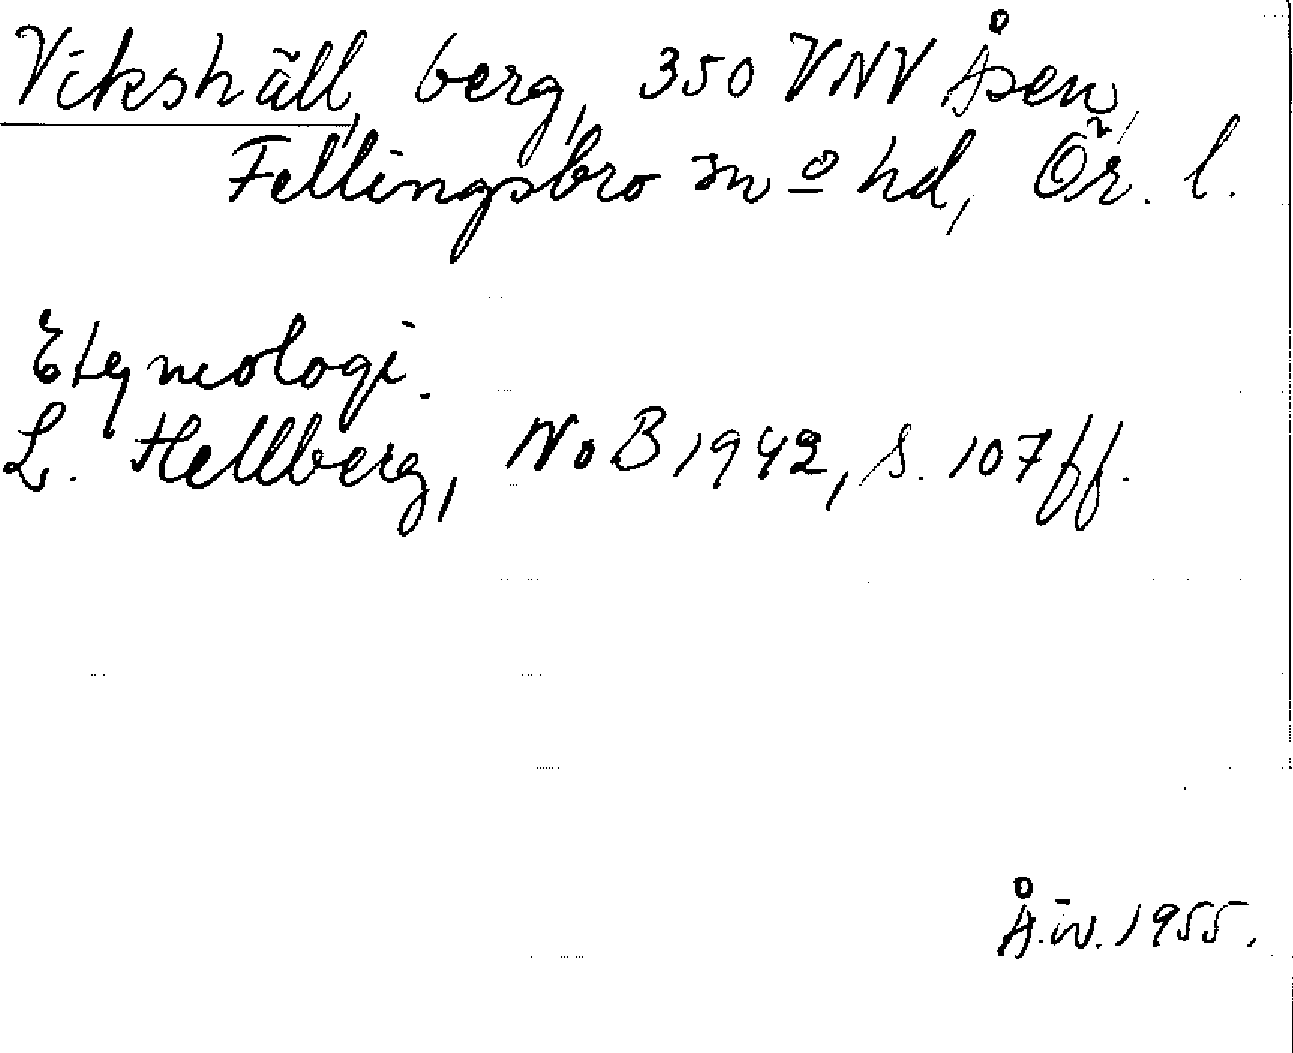 Vikshäll, berg, 350 VNV Åsen,
Fellingsbro sn o hd, Ör. l.
Etymologi.
L. Hellberg, NoB 1942, s. 107 ff.
Å.W. 1955.